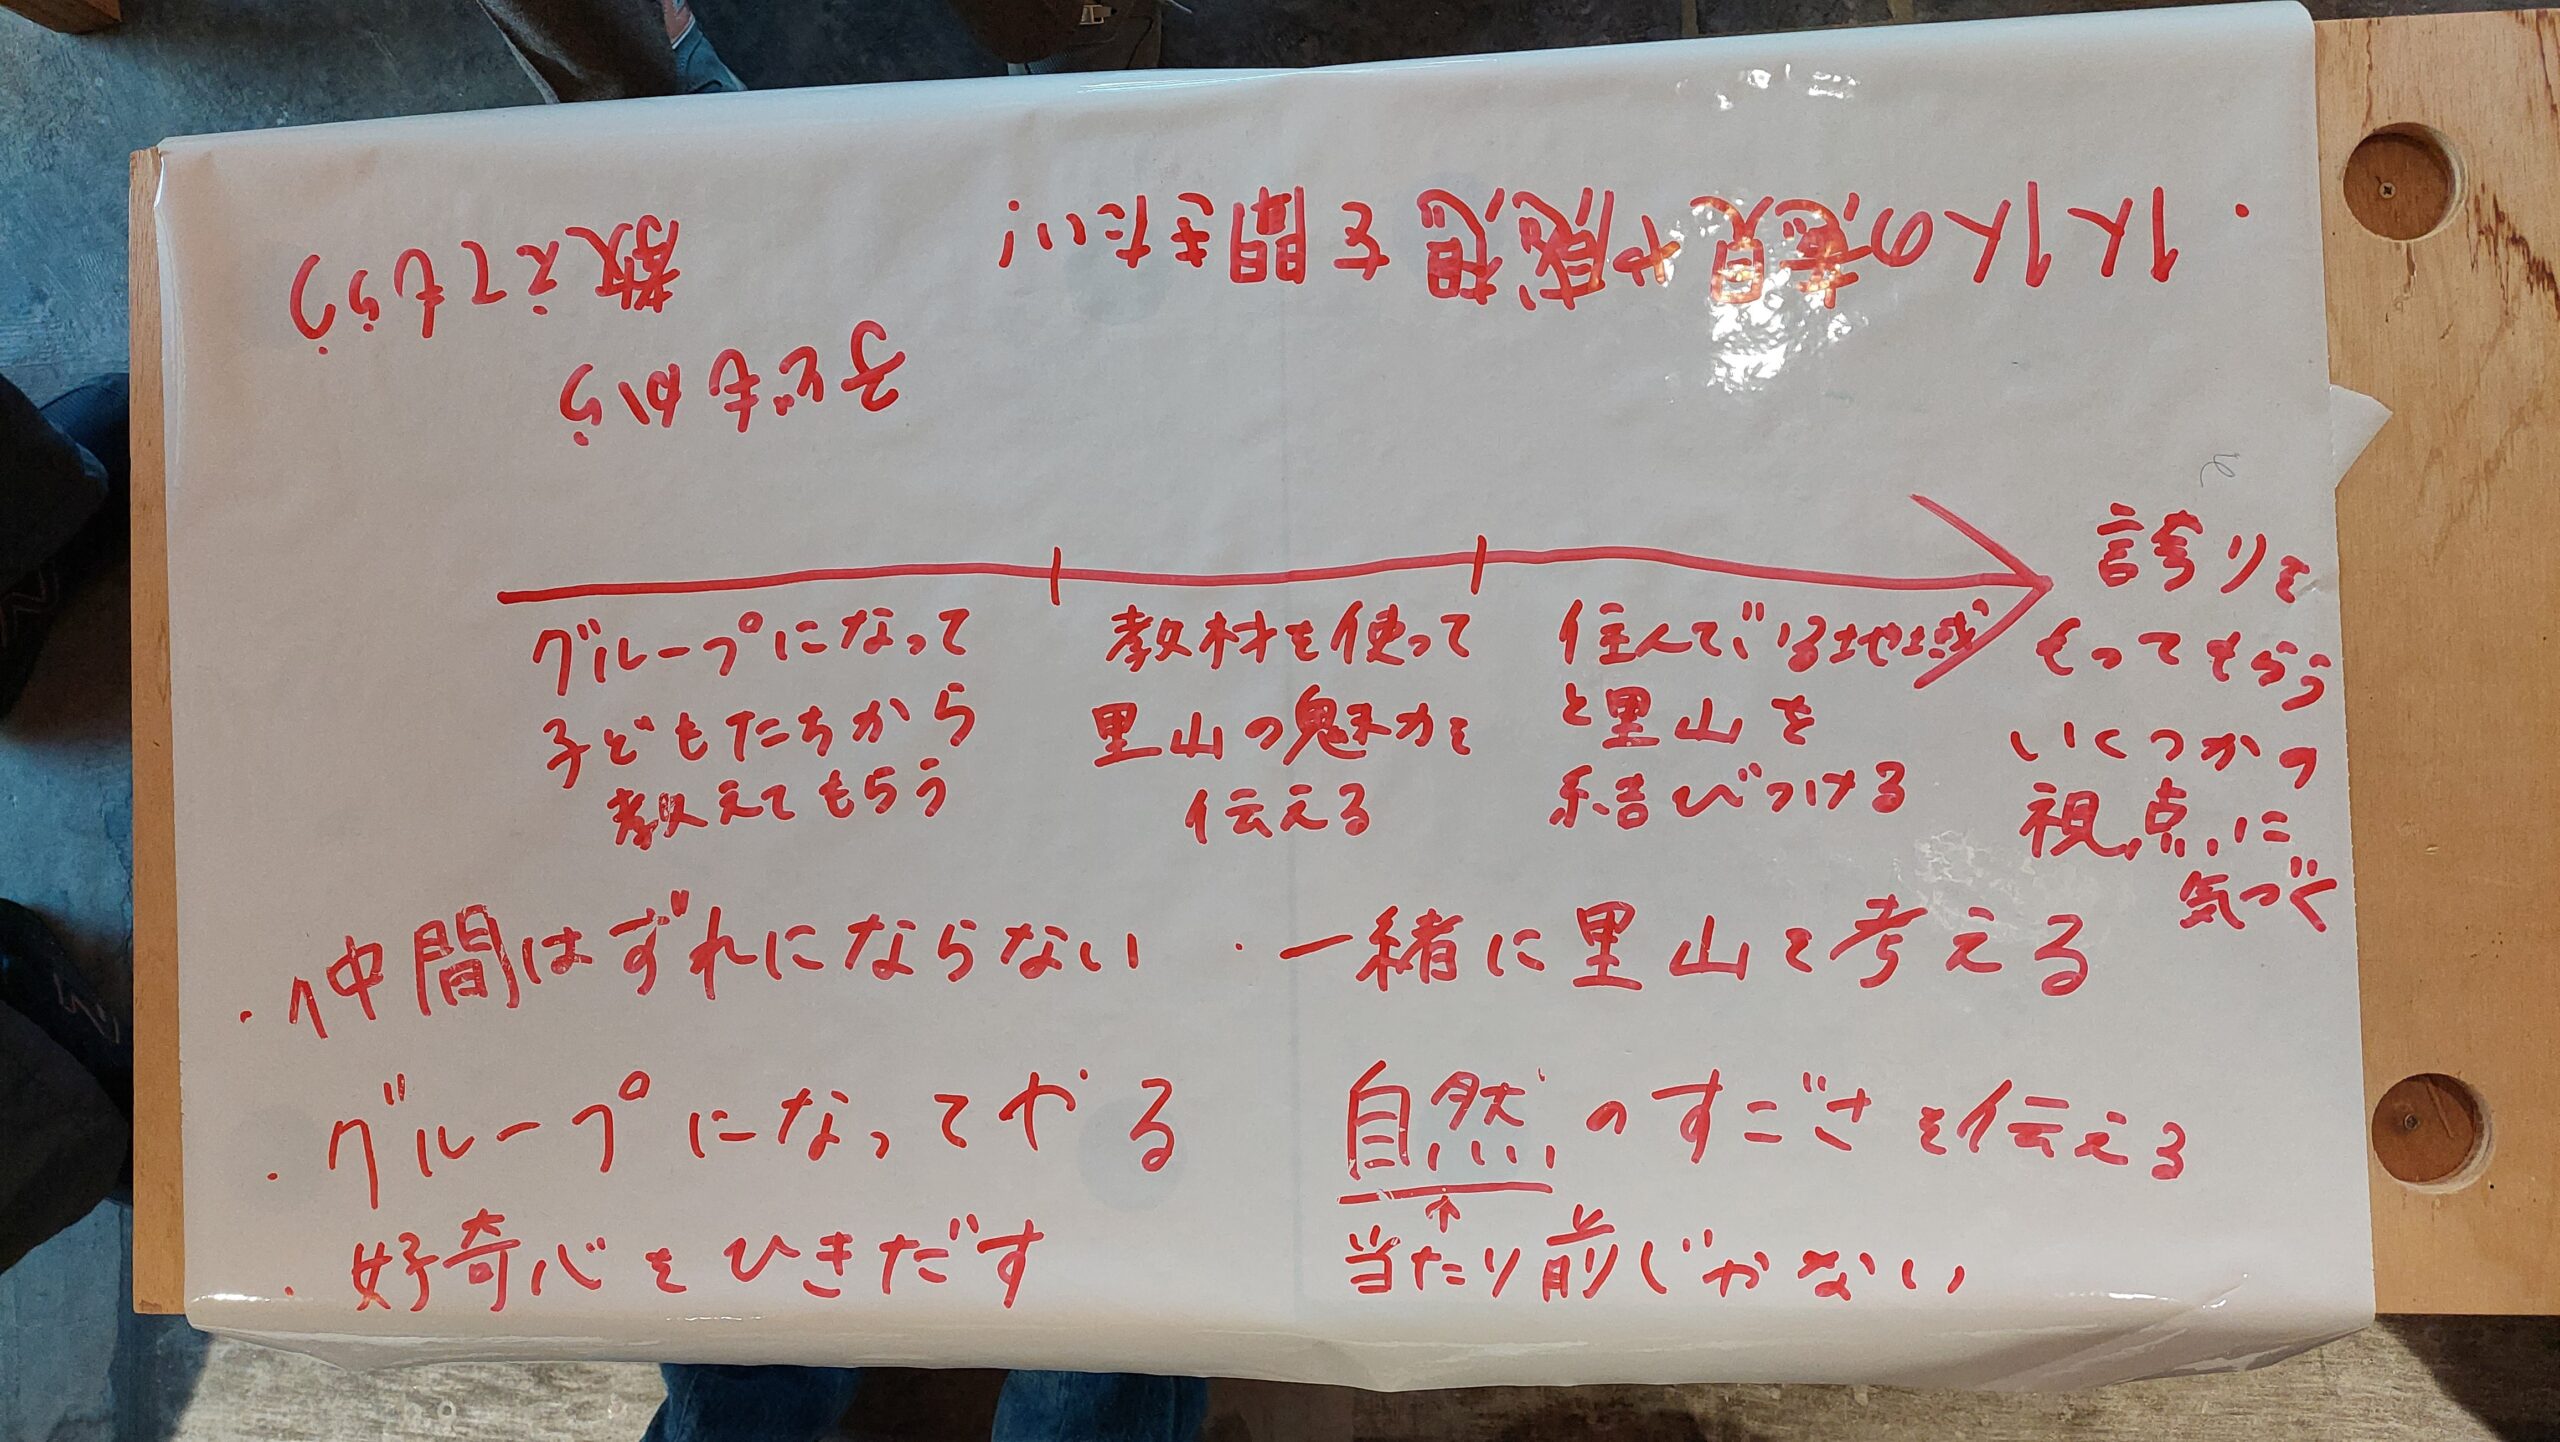 ・1人1人の意見や感想を聞きたい!
子どもから
教えてもらう
グループになって
子どもたちから
教えてもらう
教材を使って
里山の魅力を
伝える
住んでいる地域
と里山を
結びつける
誇りを
もってもらう
いくつかの
視点に
気づく
・仲間はずれにならない
・グループになってやる
・好奇心をひきだす
・一緒に里山で考える
自然のすごさを伝える
当たり前じゃない